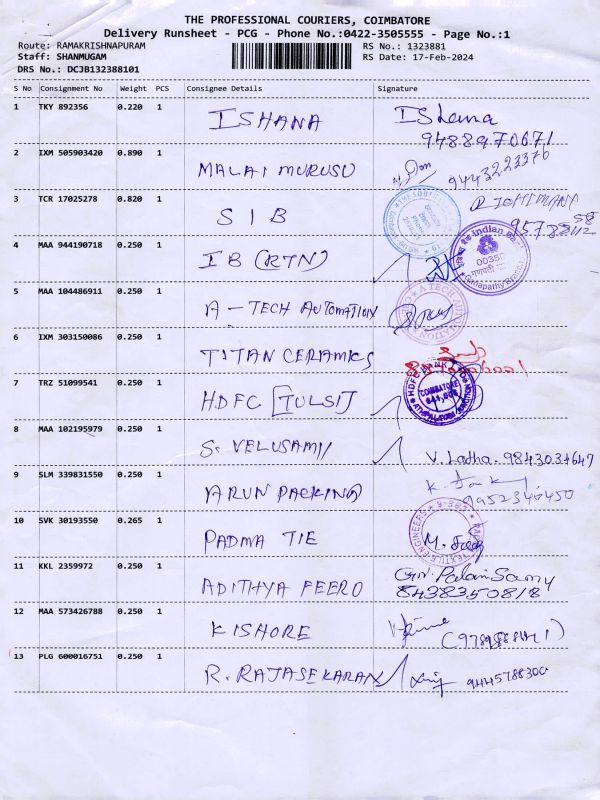 THE PROFESSIONAL COURIERS, COIMBATORE
Delivery Runsheet - PCG - Phone No.:0422-3505555 - Page No.:1
Route: RAMAKRISHNAPURAM RS No.: 1323881
Staff: SHANMUGAM RS Date: 17-Feb-2024
DRS No.: DCJB132388101
S No Consignment No Weight PCS Consignee Details Signature
1 TKY 892356 0.220 1 ISHANA
9488970671
2 IXM 505903420 0.890 1 MALAI MURUSU 9443223370
3 TCR 17025278 0.820 1 SIB
4 MAA 944190718 0.250 1 IB (RTN)
indian
0035
Ganapathy Branch
5 MAA 104486911 0.250 1 A-TECH AUTOMATION
A TECH AUTOMATION
6 IXM 303150086 0.250 1 TITAN CERAMICS
7 TRZ 51099541 0.250 1 HDFC [TULSI]
HDFC BANK
COIMBATORE
8 MAA 102195979 0.250 1 S. VELUSAMY V. Latha. 9843031649
9 SLM 339831550 0.250 1 ARUN PACKING
9952340450
10 SVK 30193550 0.265 1 PADMA TIE
TEXTILE ENGINEERS
11 KKL 2359972 0.250 1 ADITHYA FEERO Palani Samy
8438350818
12 MAA 573426788 0.250 1 KISHORE
13 PLG 600016751 0.250 1 R. RAJASEKARAN 9445788300